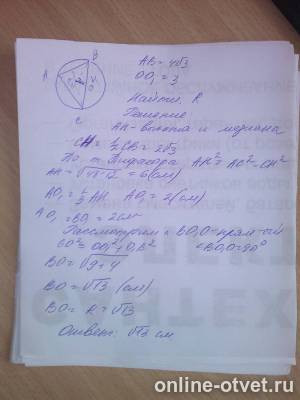 A
B
C
AB = 4√3
OO₁ = 3
Найти: R
Решение
AH - высота и медиана
CH = ½ CB = 2√3
По т. Пифагора AH² = AC² - CH²
AH = √48-12 = 6 (см)
AO₁ = ⅓ AH AO₁ = 2 (см)
AO₁ = BO₁ = 2 см
Рассмотрим △ BO₁O - прям-ый
∠BO₁O = 90°
BO² = OO₁² + O₁B²
BO = √9+4
BO = √13 (см)
BO = R = √13
Ответ: √13 см
online-otvet.ru